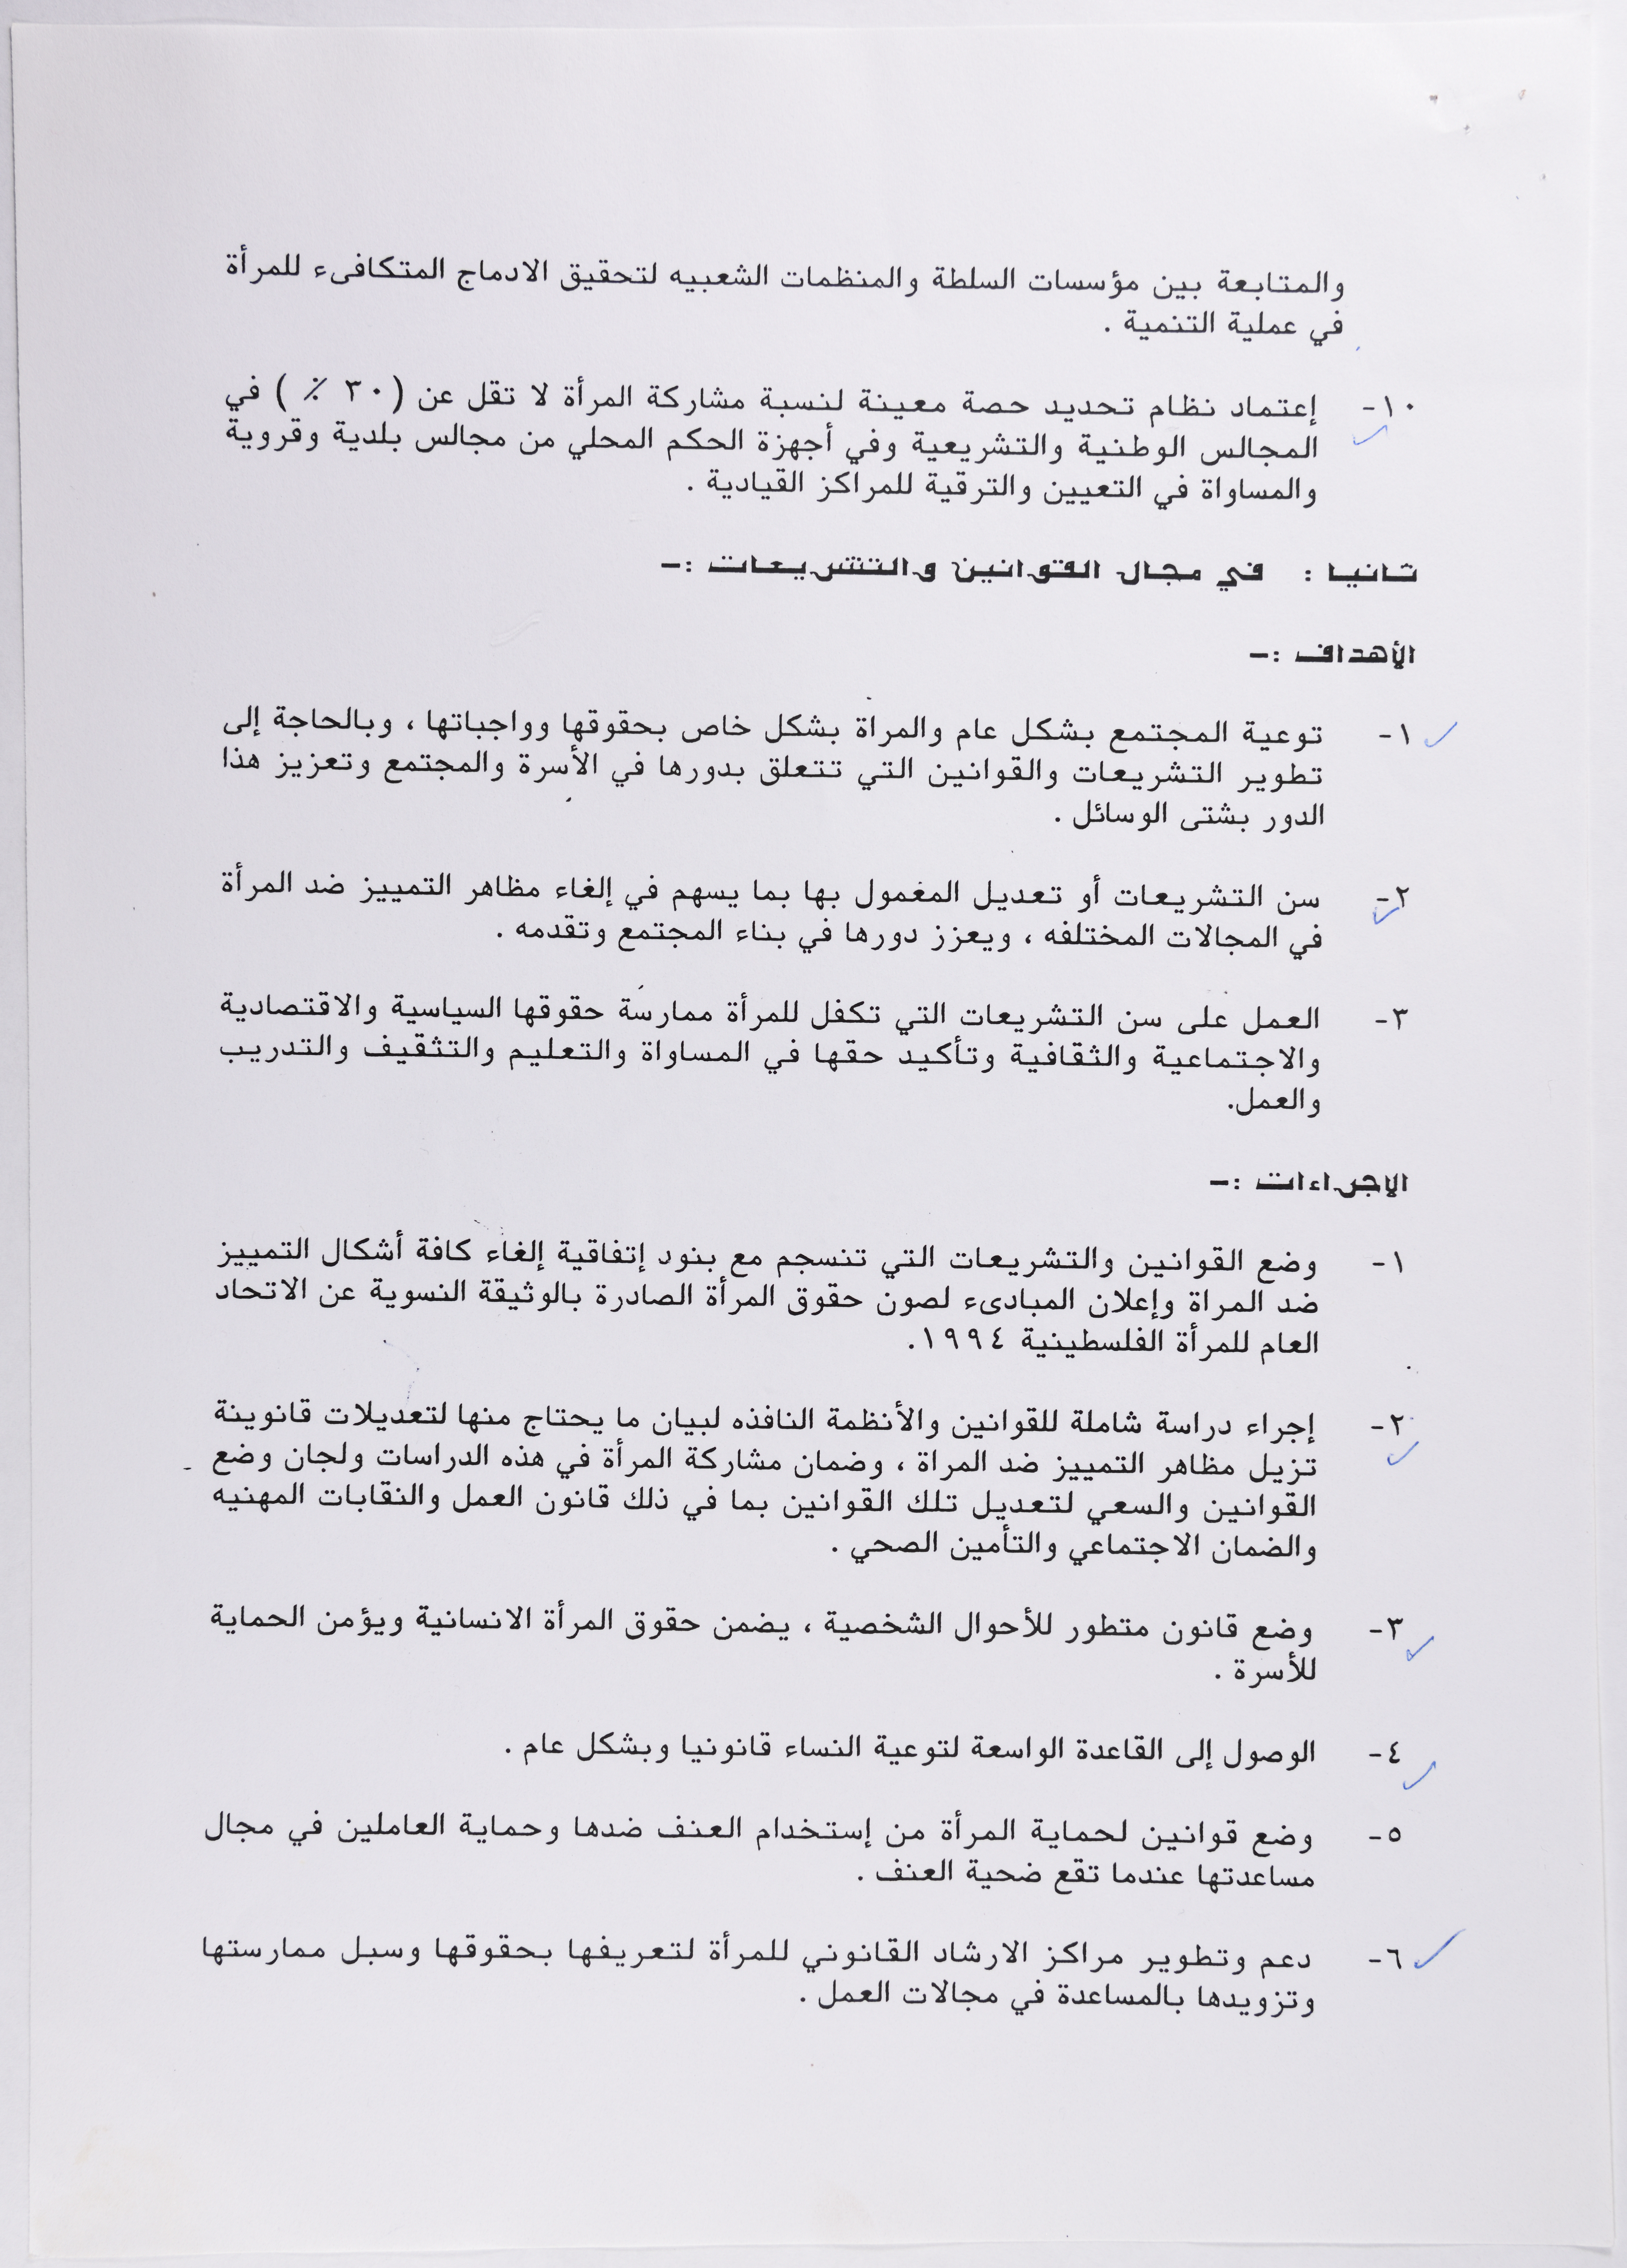 والمتابعة بين مؤسسات السلطة والمنظمات الشعبيه لتحقيق الادماج المتكافىء للمرأة
في عملية التنمية .
١٠- إعتماد نظام تحديد حصة معينة لنسبة مشاركة المرأة لا تقل عن (٣٠ ٪ ) في
المجالس الوطنية والتشريعية وفي أجهزة الحكم المحلي من مجالس بلدية وقروية
والمساواة في التعيين والترقية للمراكز القيادية .
ثانيا : في مجال القوانين والتشريعات :-
الأهداف :-
١- توعية المجتمع بشكل عام والمراة بشكل خاص بحقوقها وواجباتها ، وبالحاجة إلى
تطوير التشريعات والقوانين التي تتعلق بدورها في الأسرة والمجتمع وتعزيز هذا
الدور بشتى الوسائل .
٢- سن التشريعات أو تعديل المغمول بها بما يسهم في إلغاء مظاهر التمييز ضد المرأة
في المجالات المختلفه ، ويعزز دورها في بناء المجتمع وتقدمه .
٣- العمل على سن التشريعات التي تكفل للمرأة ممارسة حقوقها السياسية والاقتصادية
والاجتماعية والثقافية وتأكيد حقها في المساواة والتعليم والتثقيف والتدريب
والعمل.
الاجراءات :-
١- وضع القوانين والتشريعات التي تنسجم مع بنود إتفاقية إلغاء كافة أشكال التمييز
ضد المراة وإعلان المبادىء لصون حقوق المرأة الصادرة بالوثيقة النسوية عن الاتحاد
العام للمرأة الفلسطينية ١٩٩٤.
٢- إجراء دراسة شاملة للقوانين والأنظمة النافذه لبيان ما يحتاج منها لتعديلات قانوينة
تزيل مظاهر التمييز ضد المراة ، وضمان مشاركة المرأة في هذه الدراسات ولجان وضع
القوانين والسعي لتعديل تلك القوانين بما في ذلك قانون العمل والنقابات المهنيه
والضمان الاجتماعي والتأمين الصحي .
٣- وضع قانون متطور للأحوال الشخصية ، يضمن حقوق المرأة الانسانية ويؤمن الحماية
للأسرة .
٤- الوصول إلى القاعدة الواسعة لتوعية النساء قانونيا وبشكل عام .
٥- وضع قوانين لحماية المرأة من إستخدام العنف ضدها وحماية العاملين في مجال
مساعدتها عندما تقع ضحية العنف .
٦- دعم وتطوير مراكز الارشاد القانوني للمرأة لتعريفها بحقوقها وسبل ممارستها
وتزويدها بالمساعدة في مجالات العمل .